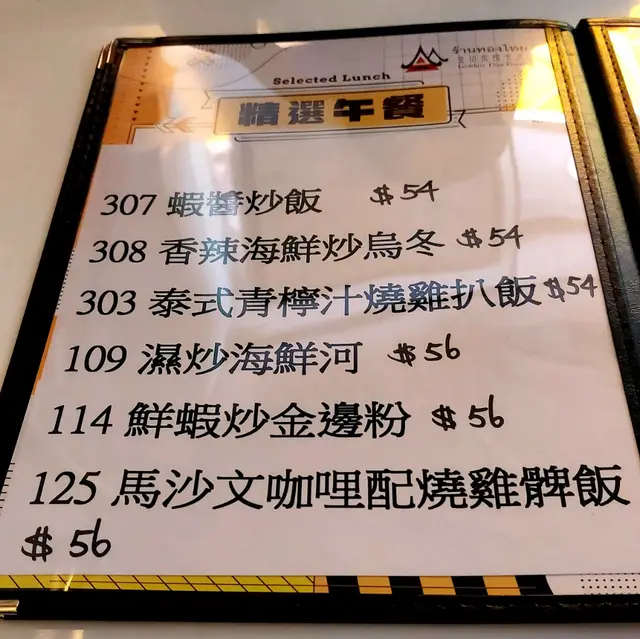 Selected Lunch
ร้านทองไทย
精選午餐
307 蝦醬炒飯 $54
308 香辣海鮮炒烏冬 $54
303 泰式青檸汁燒雞扒飯 $54
109 濕炒海鮮河 $56
114 鮮蝦炒金邊粉 $56
125 馬沙文咖哩配燒雞髀飯
$56